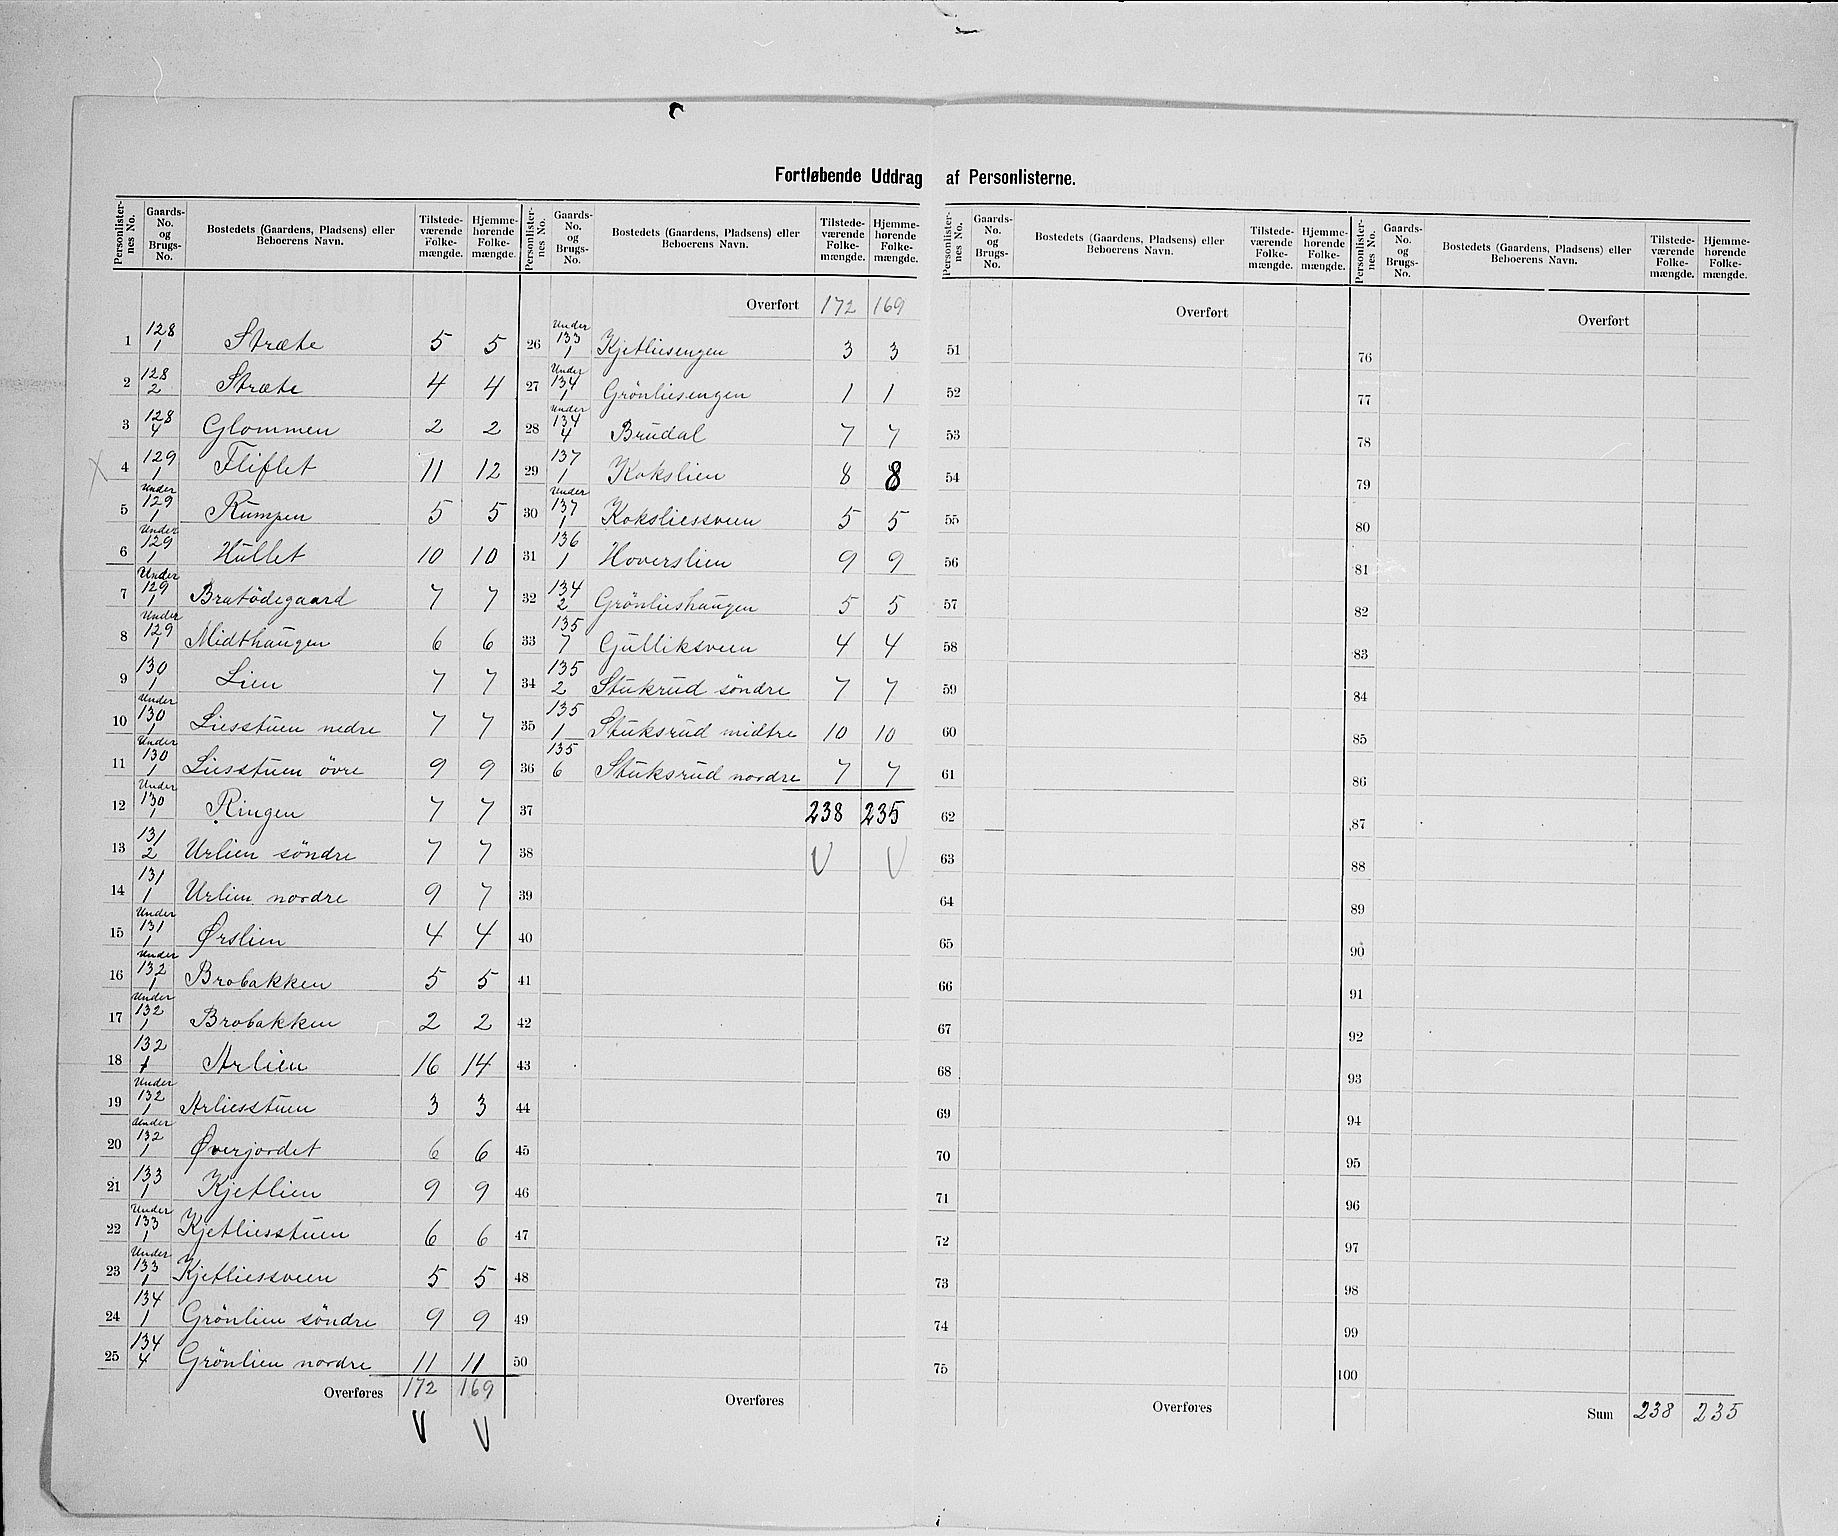 Fortløbende Uddrag af Personlisterne.
Personlister-nes No. | Gaards-No. og Brugs-No. | Bostedets (Gaardens, Pladsens) eller Beboerens Navn. | Tilstede-værende Folke-mængde. | Hjemme-hørende Folke-mængde.
1 | 128/1 | Stræte | 5 | 5
2 | 128/2 | Stræte | 4 | 4
3 | 128/4 | Glommen | 2 | 2
X 4 | 129/1 | Fliflet | 11 | 12
5 | Under 129/1 | Rumpen | 5 | 5
6 | Under 129/1 | Hullet | 10 | 10
7 | Under 129/1 | Bratödegaard | 7 | 7
8 | Under 129/1 | Midthaugen | 6 | 6
9 | 130/1 | Lien | 7 | 7
10 | Under 130/1 | Liesstuen nedre | 7 | 7
11 | Under 130/1 | Liesstuen övre | 9 | 9
12 | Under 130/1 | Ringen | 7 | 7
13 | 131/2 | Urlien söndre | 7 | 7
14 | 131/1 | Urlien nordre | 9 | 7
15 | Under 131/1 | Ørslien | 4 | 4
16 | Under 132/1 | Brobakken | 5 | 5
17 | Under 132/1 | Brobakken | 2 | 2
18 | 132/1 | Arlien | 16 | 14
19 | Under 132/1 | Arliesstuen | 3 | 3
20 | Under 132/1 | Øverjordet | 6 | 6
21 | 133/1 | Kjetlien | 9 | 9
22 | Under 133/1 | Kjetliesstuen | 6 | 6
23 | Under 133/1 | Kjetliessveen | 5 | 5
24 | 134/1 | Grönlien söndre | 9 | 9
25 | 134/4 | Grönlien nordre | 11 | 11
Overføres | 172 | 169
V | V
Personlister-nes No. | Gaards-No. og Brugs-No. | Bostedets (Gaardens, Pladsens) eller Beboerens Navn. | Tilstede-værende Folke-mængde. | Hjemme-hørende Folke-mængde.
Overført | 172 | 169
26 | Under 133/1 | Kjetliesengen | 3 | 3
27 | Under 134/1 | Grönliesengen | 1 | 1
28 | Under 134/4 | Brudal | 7 | 7
29 | 137/1 | Kokslien | 8 | 8
30 | Under 137/1 | Koksliessveen | 5 | 5
31 | 136/1 | Hoverslien | 9 | 9
32 | 134/2 | Grönlieshaugen | 5 | 5
33 | 135/7 | Gulliksveen | 4 | 4
34 | 135/2 | Stukrud söndre | 7 | 7
35 | 135/1 | Stuksrud midtre | 10 | 10
36 | 135/6 | Stuksrud nordre | 7 | 7
37 | 238 | 235
38 | V | V
39
40
41
42
43
44
45
46
47
48
49
50
Overføres
Personlister-nes No. | Gaards-No. og Brugs-No. | Bostedets (Gaardens, Pladsens) eller Beboerens Navn. | Tilstede-værende Folke-mængde. | Hjemme-hørende Folke-mængde.
Overført
51
52
53
54
55
56
57
58
59
60
61
62
63
64
65
66
67
68
69
70
71
72
73
74
75
Overføres
Personlister-nes No. | Gaards-No. og Brugs-No. | Bostedets (Gaardens, Pladsens) eller Beboerens Navn. | Tilstede-værende Folke-mængde. | Hjemme-hørende Folke-mængde.
Overført
76
77
78
79
80
81
82
83
84
85
86
87
88
89
90
91
92
93
94
95
96
97
98
99
100
Sum | 238 | 235